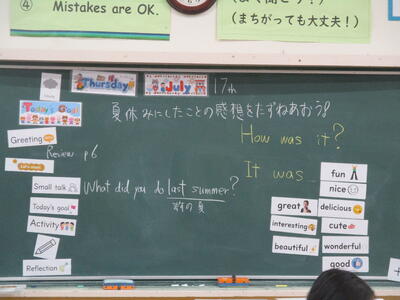 ④ Mistakes are OK.
(まちがっても大丈夫!)
Thursday July 17th
Today's Goal
夏休みにしたことの感想をたずねあおう!
Greeting
How was it?
Review p6
It was
fun
nice
Small talk
What did you do last summer?
昨年の夏
Today's goal
great
delicious
Activity
interesting
cute
beautiful
wonderful
Reflection
good